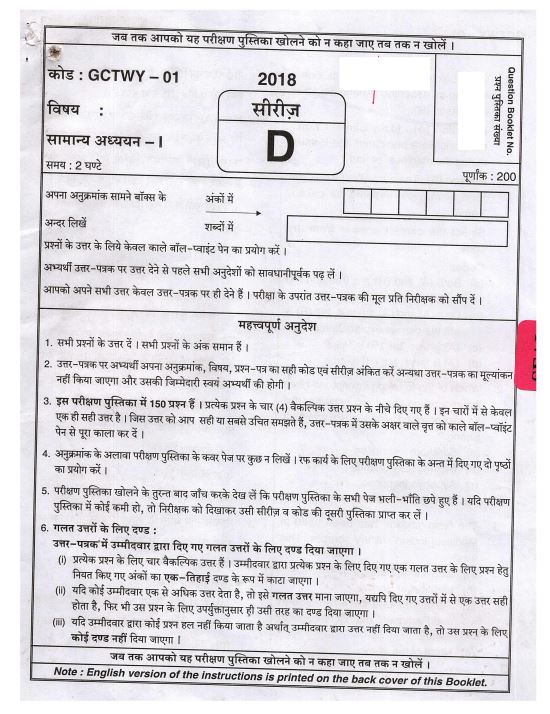 जब तक आपको यह परीक्षण पुस्तिका खोलने को न कहा जाए तब तक न खोलें ।
कोड : GCTWY – 01
2018
Question Booklet No.
प्रश्न पुस्तिका संख्या
विषय :
सीरीज़
सामान्य अध्ययन – I
D
समय : 2 घण्टे
पूर्णांक : 200
अपना अनुक्रमांक सामने बॉक्स के
अंकों में
अन्दर लिखें
शब्दों में
प्रश्नों के उत्तर के लिये केवल काले बॉल-प्वाइंट पेन का प्रयोग करें ।
अभ्यर्थी उत्तर-पत्रक पर उत्तर देने से पहले सभी अनुदेशों को सावधानीपूर्वक पढ़ लें ।
आपको अपने सभी उत्तर केवल उत्तर-पत्रक पर ही देने हैं । परीक्षा के उपरांत उत्तर-पत्रक की मूल प्रति निरीक्षक को सौंप दें ।
महत्त्वपूर्ण अनुदेश
1. सभी प्रश्नों के उत्तर दें । सभी प्रश्नों के अंक समान हैं ।
2. उत्तर-पत्रक पर अभ्यर्थी अपना अनुक्रमांक, विषय, प्रश्न-पत्र का सही कोड एवं सीरीज़ अंकित करें अन्यथा उत्तर-पत्रक का मूल्यांकन
नहीं किया जाएगा और उसकी जिम्मेदारी स्वयं अभ्यर्थी की होगी ।
3. इस परीक्षण पुस्तिका में 150 प्रश्न हैं । प्रत्येक प्रश्न के चार (4) वैकल्पिक उत्तर प्रश्न के नीचे दिए गए हैं । इन चारों में से केवल
एक ही सही उत्तर है । जिस उत्तर को आप सही या सबसे उचित समझते हैं, उत्तर-पत्रक में उसके अक्षर वाले वृत्त को काले बॉल-प्वॉइंट
पेन से पूरा काला कर दें ।
4. अनुक्रमांक के अलावा परीक्षण पुस्तिका के कवर पेज पर कुछ न लिखें । रफ कार्य के लिए परीक्षण पुस्तिका के अन्त में दिए गए दो पृष्ठों
का प्रयोग करें ।
5. परीक्षण पुस्तिका खोलने के तुरन्त बाद जाँच करके देख लें कि परीक्षण पुस्तिका के सभी पेज भली-भाँति छपे हुए हैं । यदि परीक्षण
पुस्तिका में कोई कमी हो, तो निरीक्षक को दिखाकर उसी सीरीज़ व कोड की दूसरी पुस्तिका प्राप्त कर लें ।
6. गलत उत्तरों के लिए दण्ड :
उत्तर-पत्रक में उम्मीदवार द्वारा दिए गए गलत उत्तरों के लिए दण्ड दिया जाएगा ।
(i) प्रत्येक प्रश्न के लिए चार वैकल्पिक उत्तर हैं । उम्मीदवार द्वारा प्रत्येक प्रश्न के लिए दिए गए एक गलत उत्तर के लिए प्रश्न हेतु
नियत किए गए अंकों का एक-तिहाई दण्ड के रूप में काटा जाएगा ।
(ii) यदि कोई उम्मीदवार एक से अधिक उत्तर देता है, तो इसे गलत उत्तर माना जाएगा, यद्यपि दिए गए उत्तरों में से एक उत्तर सही
होता है, फिर भी उस प्रश्न के लिए उपर्युक्तानुसार ही उसी तरह का दण्ड दिया जाएगा ।
(iii) यदि उम्मीदवार द्वारा कोई प्रश्न हल नहीं किया जाता है अर्थात् उम्मीदवार द्वारा उत्तर नहीं दिया जाता है, तो उस प्रश्न के लिए
कोई दण्ड नहीं दिया जाएगा ।
जब तक आपको यह परीक्षण पुस्तिका खोलने को न कहा जाए तब तक न खोलें ।
Note : English version of the instructions is printed on the back cover of this Booklet.